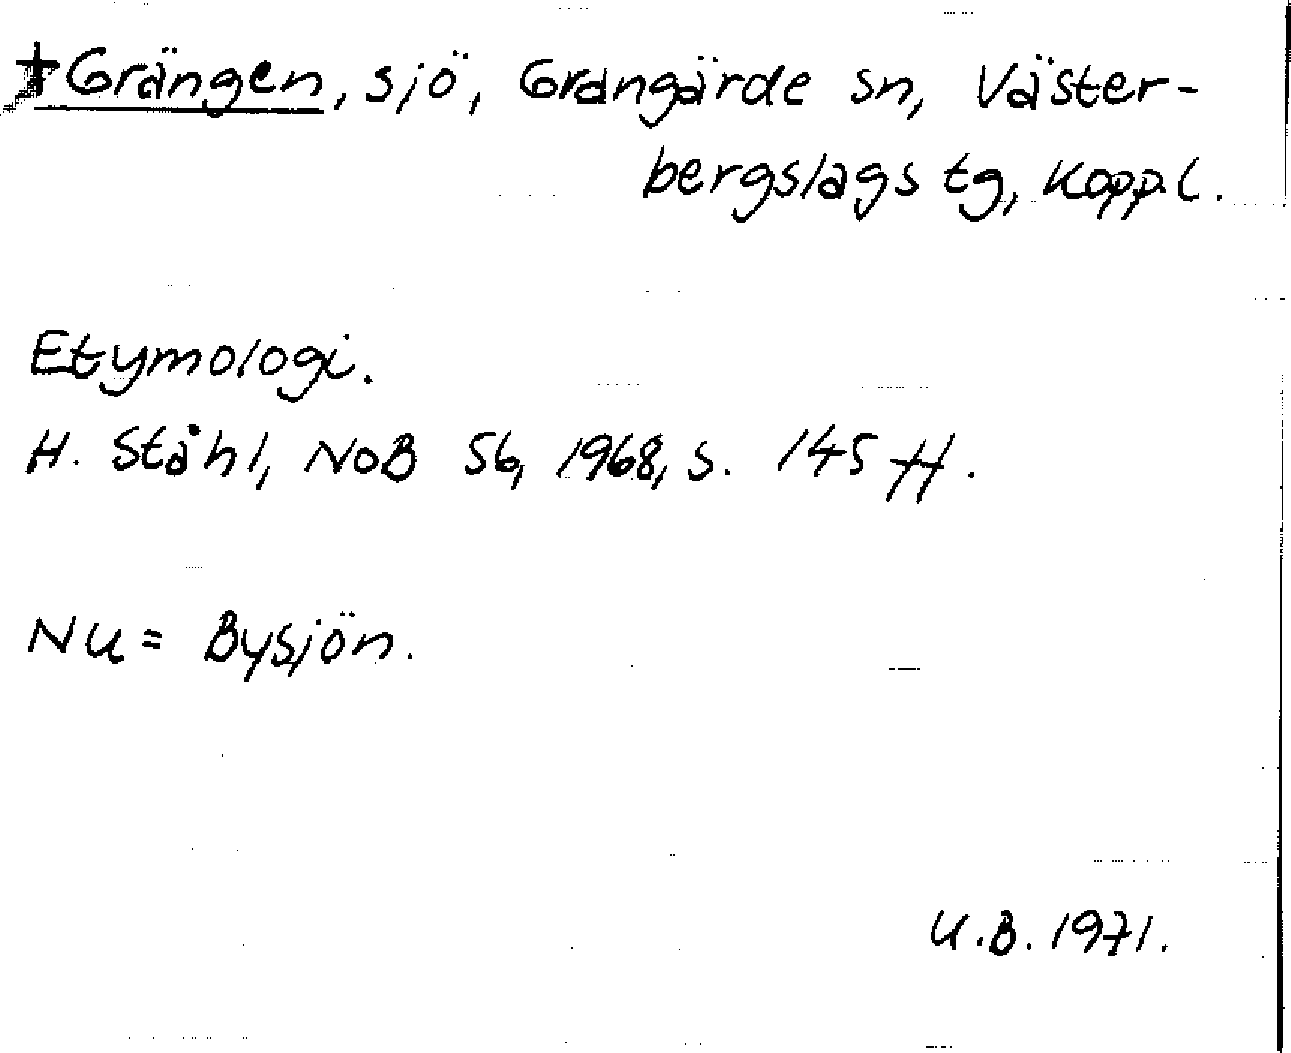 +Grängen, sjö, Grangärde sn, Väster-
bergslags tg, Kopp.l.
Etymologi.
H. Ståhl, NoB 56, 1968, s. 145 ff.
Nu = Bysjön.
U.B. 1971.